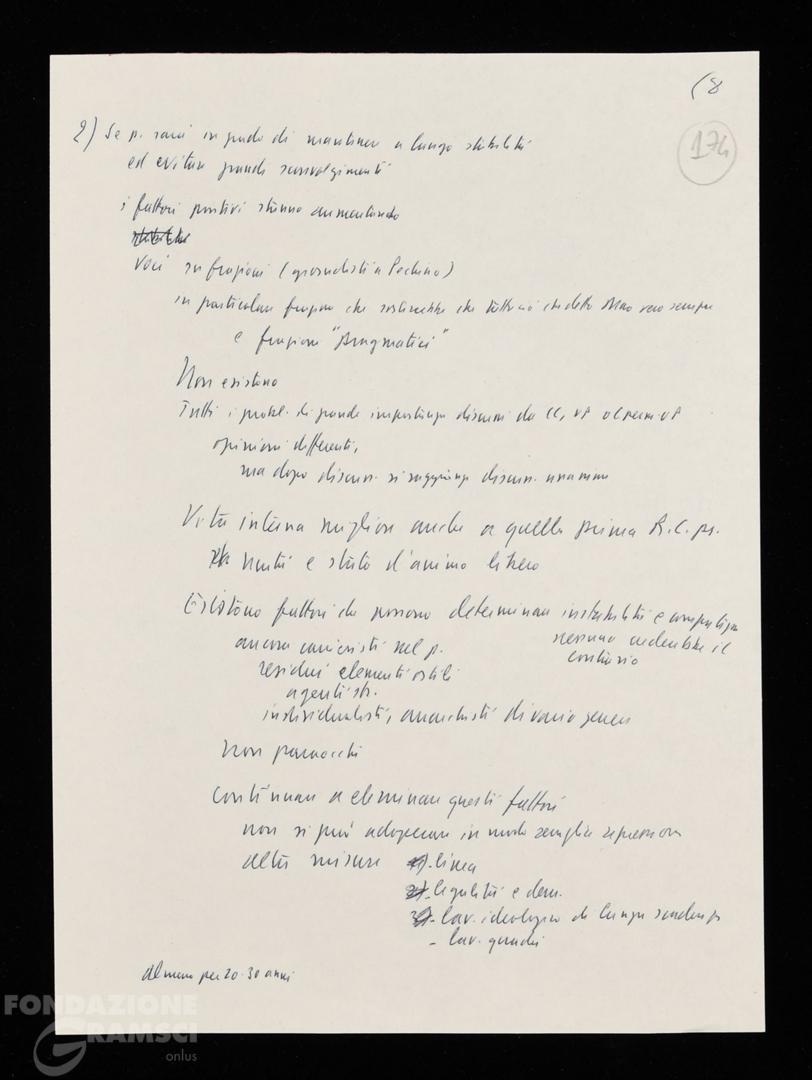 (8
174
2) Se p. sarà in grado di mantenere a lungo stabilità
ed evitare grandi sconvolgimenti
i fattori positivi stanno aumentando
Voci su frazioni (giornalisti a Pechino)
in particolare frazione che sosterrebbe che tutto ciò che detto Mao vero sempre
e frazione "Pragmatici"
Non esistono
Tutti i probl. di grande importanza discussi da CC, UP o C perm. UP
opinioni differenti,
ma dopo discuss. si raggiunge unanim
Vita interna migliore anche a quella prima R.C.
unità e stato d'animo libero
Esistono fattori che possono determinare instabilità e
nessuno crederebbe il
contrario
ancora carrieristi nel p.
residui elementi ostili
agenti str.
individualisti, anarchisti di vario genere
non parrocchi
Continuare a eliminare questi fattori
non si può adoperare in modo semplice repressione
altre misure
1) - linea
2) - legalità e dem.
3) - lav. ideologico di lunga scadenza
- lav. quadri
Almeno per 20-30 anni
FONDAZIONE
GRAMSCI
onlus